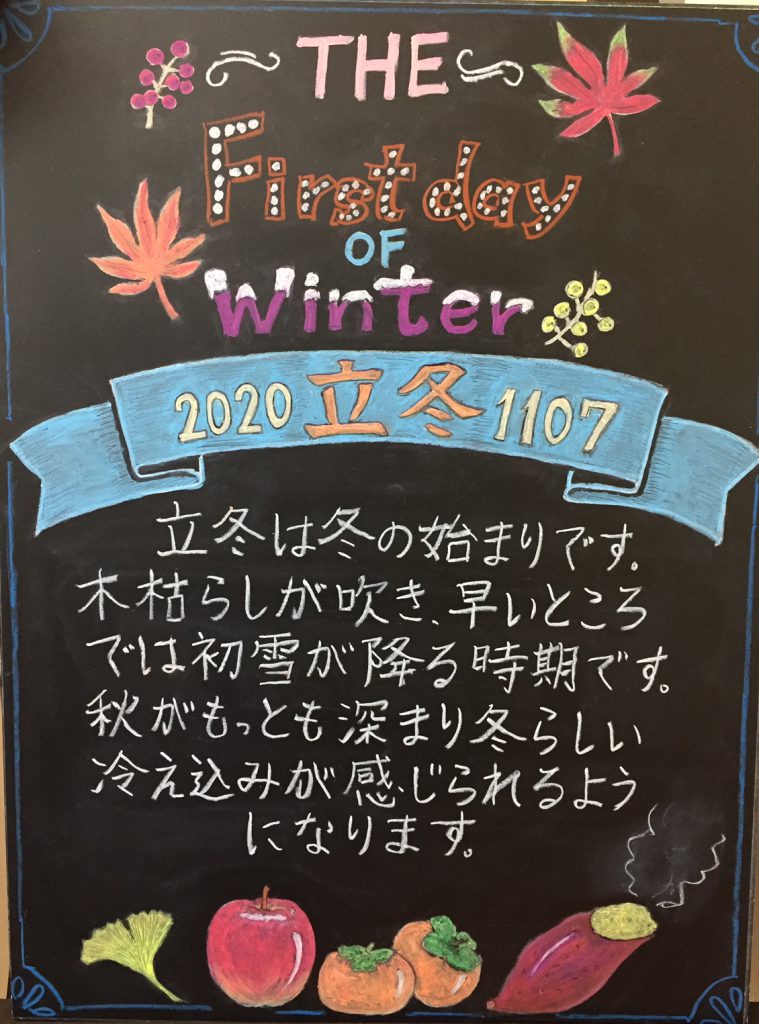 THE
First day
OF
Winter
2020 立冬 1107
立冬は冬の始まりです。
木枯らしが吹き、早いところ
では初雪が降る時期です。
秋がもっとも深まり冬らしい
冷え込みが感じられるよう
になります。